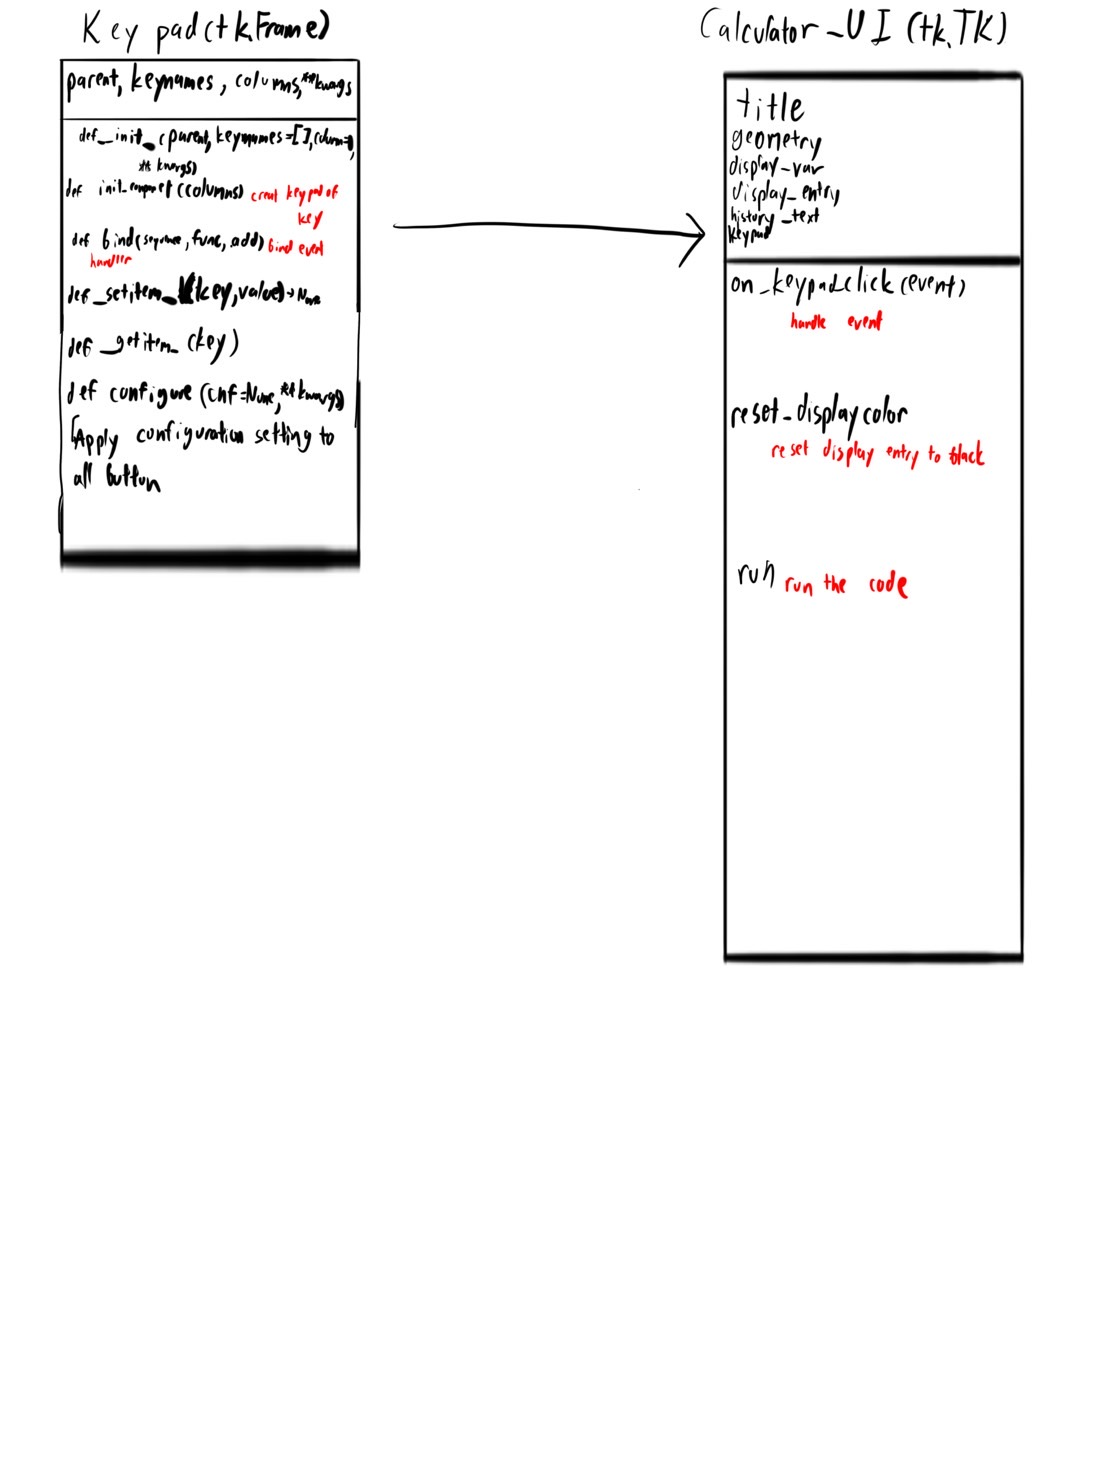 Keypad(tk.Frame)
parent, keynames, columns, **kwargs
def__init_(parent, keynames=[], column=1,
** kwargs)
def init_componet (columns) creat keypad of
key
def bind(sequence, func, add) bind event
handler
def_setitem_(key, value)->None
def _getitem_ (key)
def configure (cnf=None, **kwargs)
[Apply configuration setting to
all button
Calculator_UI (tk.TK)
title
geometry
display_var
display_entry
history_text
keypad
on_keypad_click (event)
handle event
reset_displaycolor
reset display entry to black
run run the code